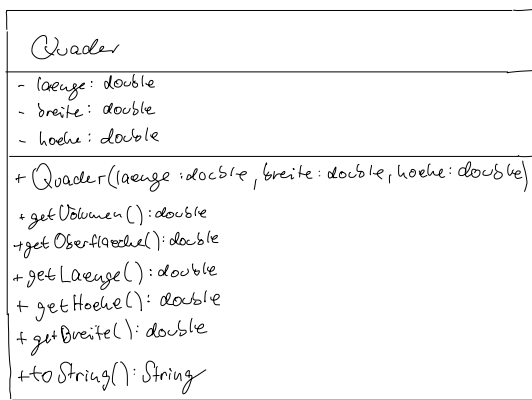 Quader
- laenge: double
- breite: double
- hoehe: double
+ Quader(laenge: double, breite: double, hoehe: double)
+ getVolumen(): double
+ getOberflaeche(): double
+ getLaenge(): double
+ getHoehe(): double
+ getBreite(): double
+ toString(): String